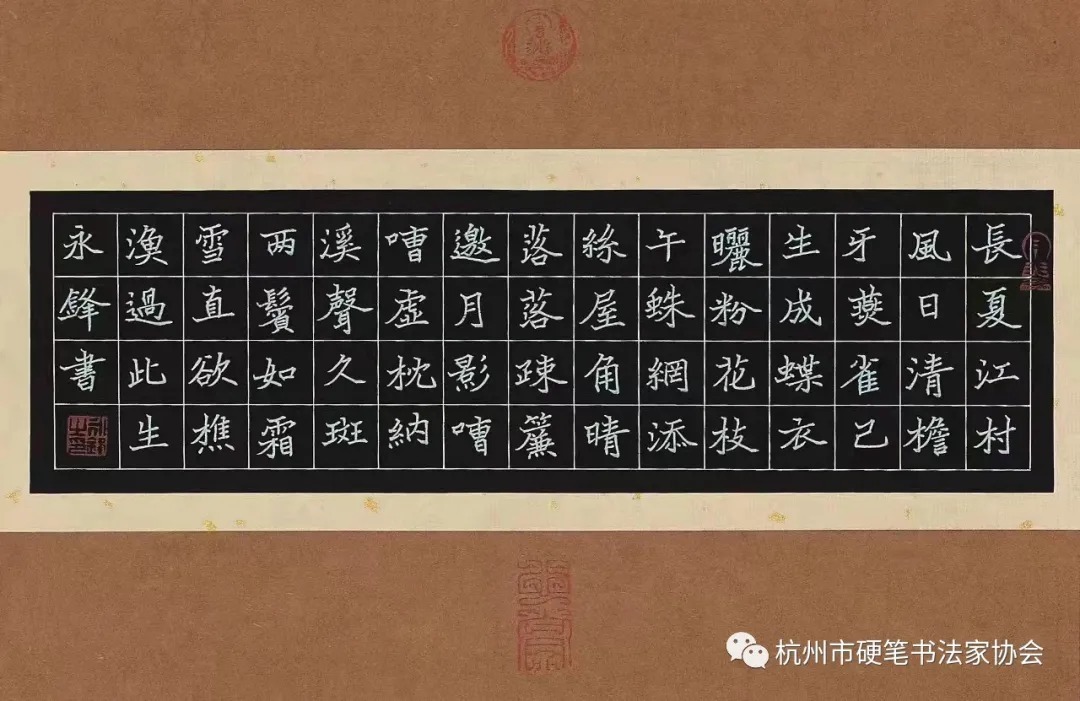 長夏江村
風日清檐
牙燕雀已
生成蝶衣
曬粉花枝
午蛛網添
絲屋角晴
落落疎簾
邀月影嘈
嘈虛枕納
溪聲久斑
两鬢如霜
雪直欲樵
漁過此生
永鋒書
杭州市硬笔书法家协会